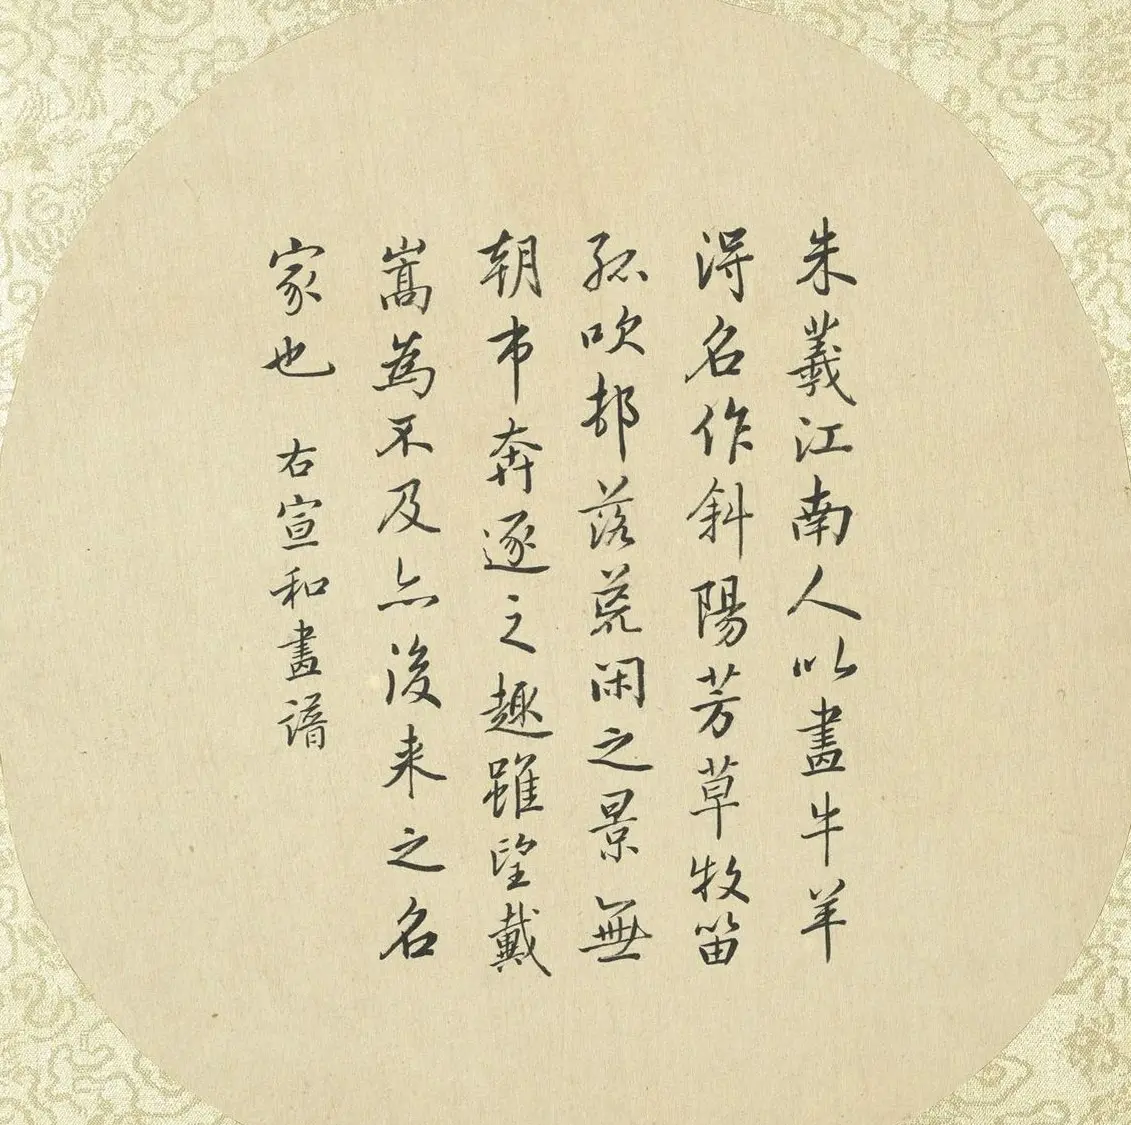 朱羲江南人以畫牛羊
得名作斜陽芳草牧笛
孤吹部落荒閑之景無
朝市奔逐之趣雖望戴
嵩為不及亦後来之名
家也 右宣和畫譜